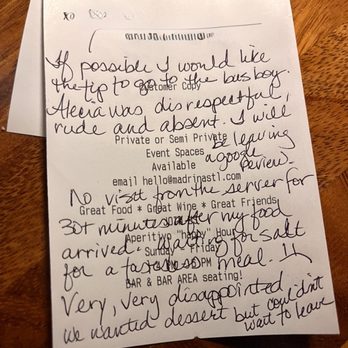 If possible I would like
the tip to go to the bus boy.
Customer Copy
Alecia was disrespectful,
rude and absent. I will
be leaving
a google
review.
Private or Semi Private
Event Spaces
Available
email hello@madrinastl.com
No visit from the server for
Great Food * Great Wine * Great Friends
30+ minutes after my food
Aperitivo "happy" Hour
arrived. Waiting for salt
Sunday - Friday
for a tasteless meal. !!
PM
BAR & BAR AREA seating!
Very, very disappointed
we wanted dessert but couldn't
wait to leave